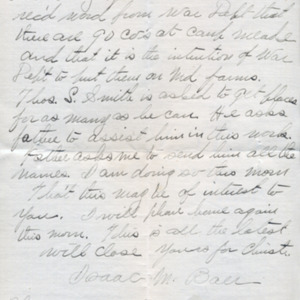 rec'd word from War Dept that
there are 90 COs at Camp Meade
and that it is the intention of War
Dept to put them on Md farms.
Thos. S. Smith is asked to get places
for as many as he can. He asks
father to assist him in this work.
Father asks me to send him all the
names. I am doing so this morn
That this may be of interest to
you. I will phone home again
this morn. This is all the latest
will close Yours for Christ
Isaac M. Baer